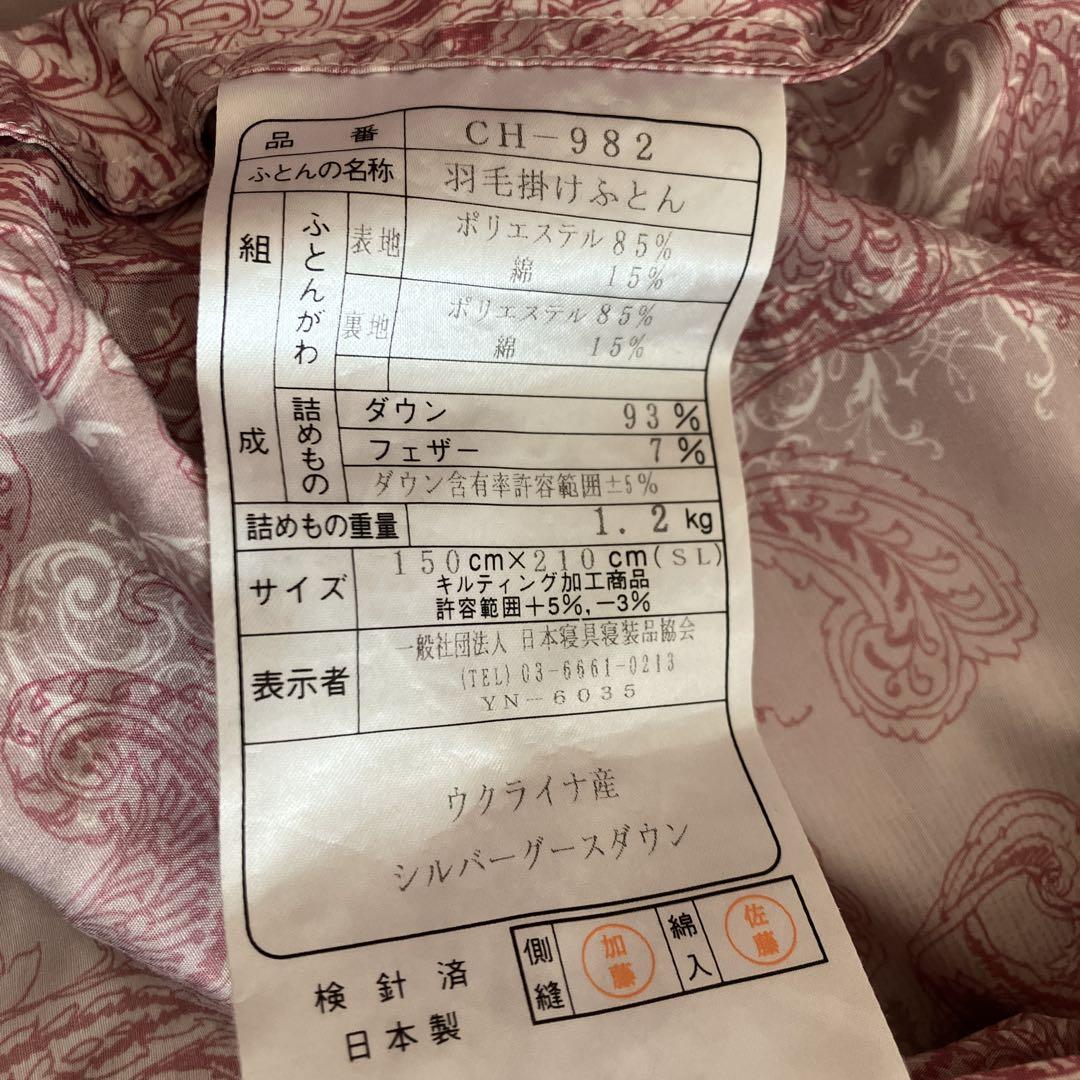 品番 CH-982
ふとんの名称 羽毛掛けふとん
組成
ふとんがわ
表地 ポリエステル 85%
綿 15%
裏地 ポリエステル 85%
綿 15%
詰めもの
ダウン 93%
フェザー 7%
ダウン含有率許容範囲±5%
詰めもの重量 1.2 kg
サイズ 150cm×210cm(SL)
キルティング加工商品
許容範囲+5%,-3%
表示者 一般社団法人 日本寝具寝装品協会
(TEL) 03-6661-0213
YN-6035
ウクライナ産
シルバーグースダウン
側縫 加藤 綿入 佐藤
検針済
日本製